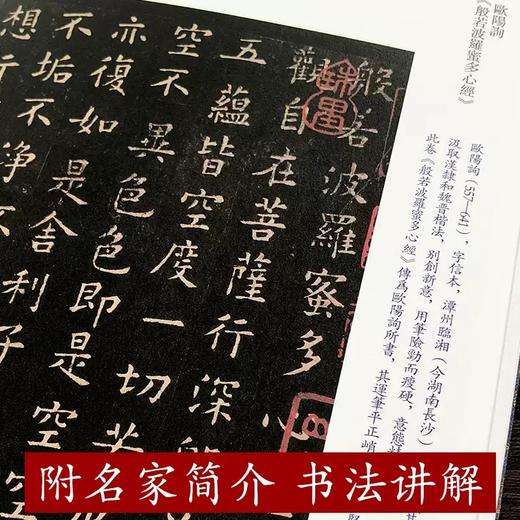 歐陽詢
《般若波羅蜜多心經》
歐陽詢（557—641），字信本，潭州臨湘（今湖南長沙）
汲取漢隸和魏晉楷法，別創新意，用筆險勁而瘦硬，意態
此卷《般若波羅蜜多心經》傳爲歐陽詢所書，其運筆平正峭
般若波羅蜜多心
觀自在菩薩行深般
五蘊皆空度一切苦
空不異色色即是空
亦復如是舍利子
不垢不淨不
想行
附名家简介 书法讲解